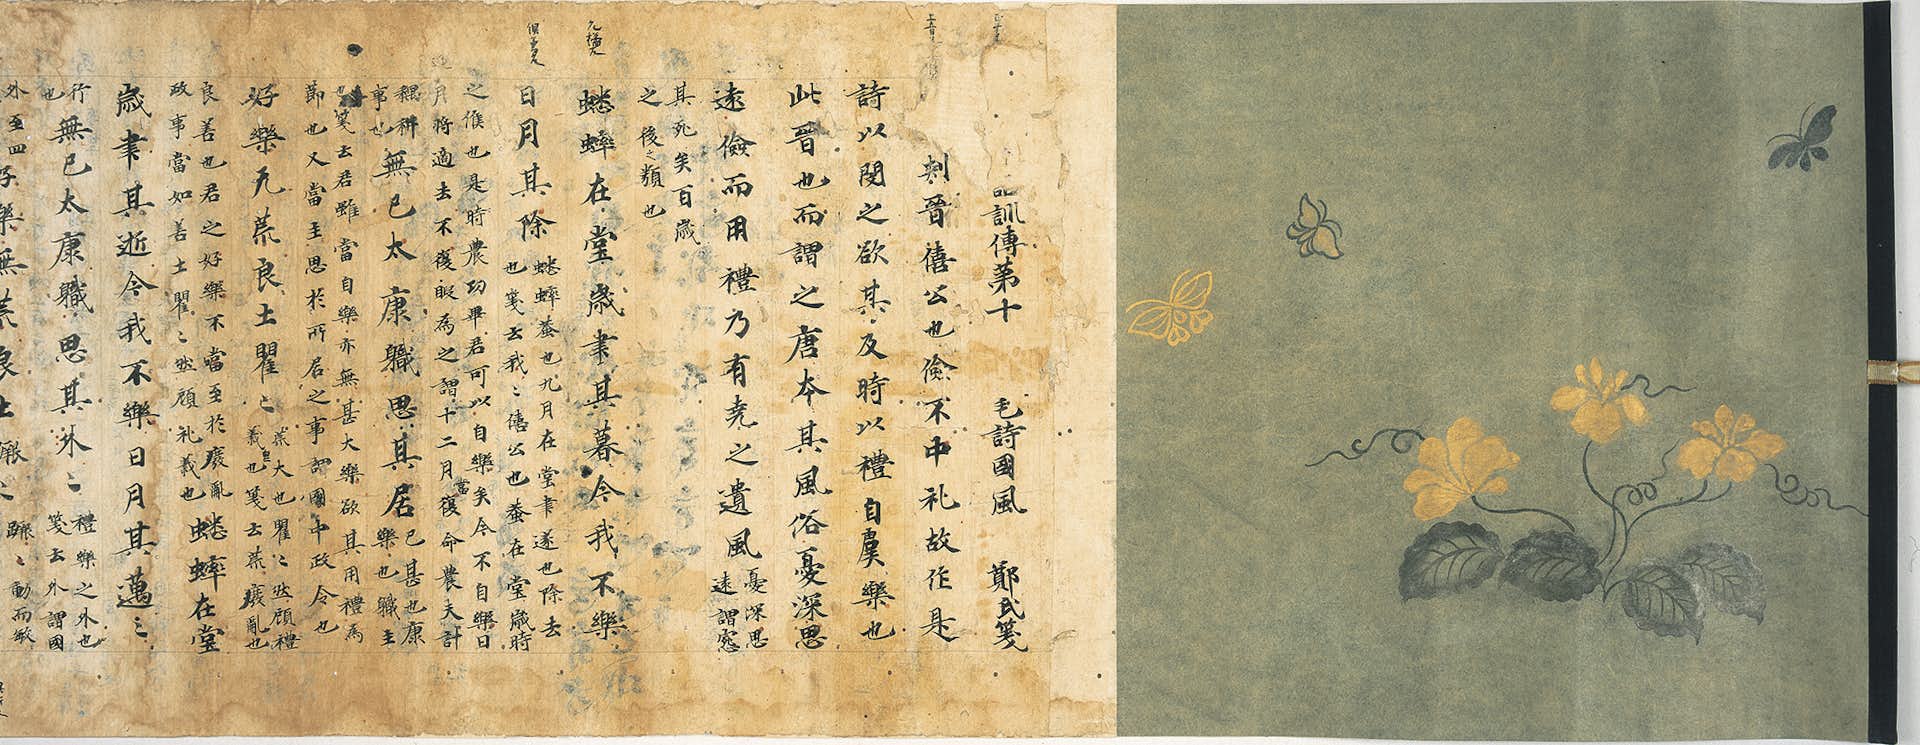 訓傳第十 毛詩國風 鄭氏箋
刺晉僖公也儉不中礼故作是
詩以閔之欲其及時以禮自虞樂也
此晉也而謂之唐本其風俗憂深思
遠儉而用禮乃有堯之遺風 憂深思
遠謂宛
其死矣百歲
之後之類也
蟋蟀在堂歲聿其暮今我不樂
日月其除 蟋蟀蛬也九月在堂聿遂也除去
也箋云我〻僖公也蛬在堂歲時
之候也是時農功畢君可以自樂矣今不自樂日
月將適去不復暇為之謂十二月當復命農夫計
耦耕
事也
無已太康職思其居 已甚也康
樂也職主
也箋云君雖當自樂亦無甚大樂欲其用禮為
節也又當主思於所居之事謂國中政令也
好樂无荒良士瞿〻 荒大也瞿〻然顧禮
義也箋云荒廢亂也
良善也君之好樂不當至於廢亂
政事當如善士瞿〻然顧礼義也
蟋蟀在堂
歲聿其逝今我不樂日月其邁〻
行
也
無已太康職思其外〻 禮樂之外也
箋云外謂國
外至四
好樂無荒良士蹶〻 蹶〻動而敏